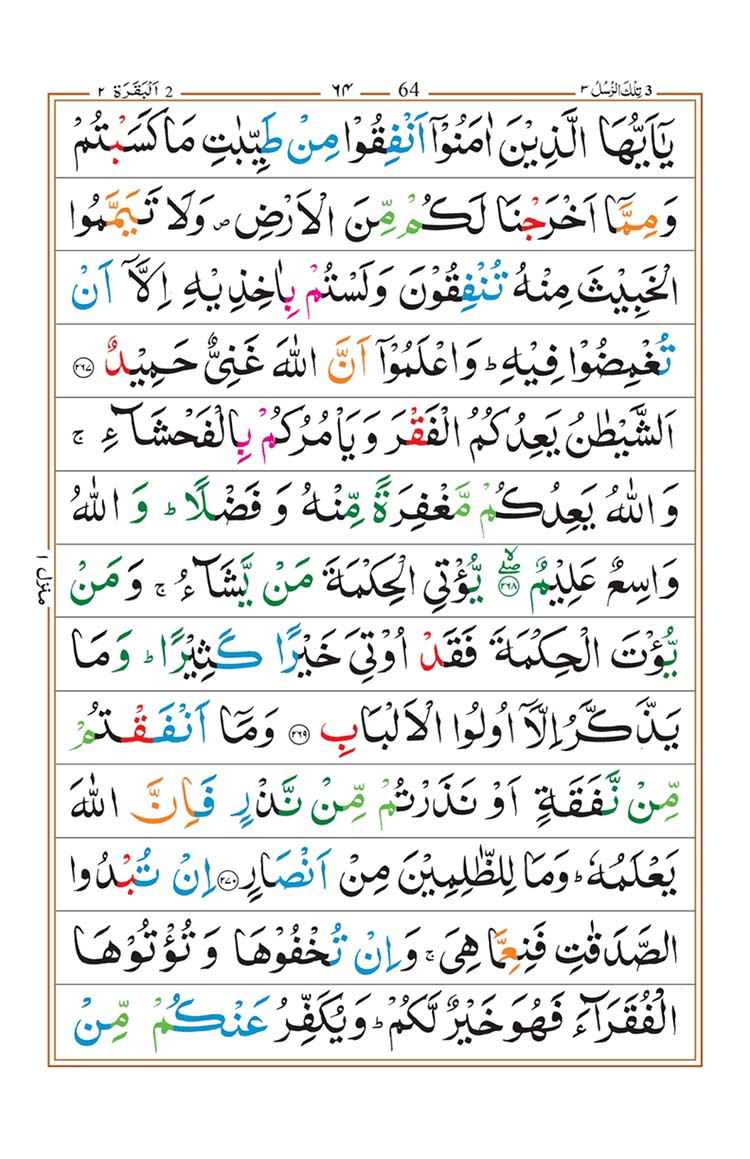 3 تِلْكَ الرُّسُلُ ٣ 64 ٦٤ 2 اَلْبَقَرَة ٢
يٰۤاَيُّهَا الَّذِيْنَ اٰمَنُوْۤا اَنْفِقُوْا مِنْ طَيِّبٰتِ مَا كَسَبْتُمْ
وَ مِمَّاۤ اَخْرَجْنَا لَكُمْ مِّنَ الْاَرْضِ ۪ وَلَا تَيَمَّمُوا
الْخَبِيْثَ مِنْهُ تُنْفِقُوْنَ وَلَسْتُمْ بِاٰخِذِيْهِ اِلَّاۤ اَنْ
تُغْمِضُوْا فِيْهِ ؕ وَاعْلَمُوْۤا اَنَّ اللّٰهَ غَنِيٌّ حَمِيْدٌ ﴿٢٦٧﴾
اَلشَّيْطٰنُ يَعِدُكُمُ الْفَقْرَ وَ يَاْمُرُكُمْ بِالْفَحْشَآءِ ۚ
وَ اللّٰهُ يَعِدُكُمْ مَّغْفِرَةً مِّنْهُ وَ فَضْلًا ؕ وَ اللّٰهُ
وَاسِعٌ عَلِيْمٌ ﴿٢٦٨﴾ۙۖ يُّؤْتِي الْحِكْمَةَ مَنْ يَّشَآءُ ۚ وَ مَنْ
يُّؤْتَ الْحِكْمَةَ فَقَدْ اُوْتِيَ خَيْرًا كَثِيْرًا ؕ وَمَا
يَذَّكَّرُ اِلَّاۤ اُولُوا الْاَلْبَابِ ﴿٢٦٩﴾ وَمَاۤ اَنْفَقْتُمْ
مِّنْ نَّفَقَةٍ اَوْ نَذَرْتُمْ مِّنْ نَّذْرٍ فَاِنَّ اللّٰهَ
يَعْلَمُهٗ ؕ وَمَا لِلظّٰلِمِيْنَ مِنْ اَنْصَارٍ ﴿٢٧٠﴾ اِنْ تُبْدُوا
الصَّدَقٰتِ فَنِعِمَّا هِيَ ۚ وَاِنْ تُخْفُوْهَا وَ تُؤْتُوْهَا
الْفُقَرَآءَ فَهُوَ خَيْرٌ لَّكُمْ ؕ وَيُكَفِّرُ عَنْكُمْ مِّنْ
منزل ١